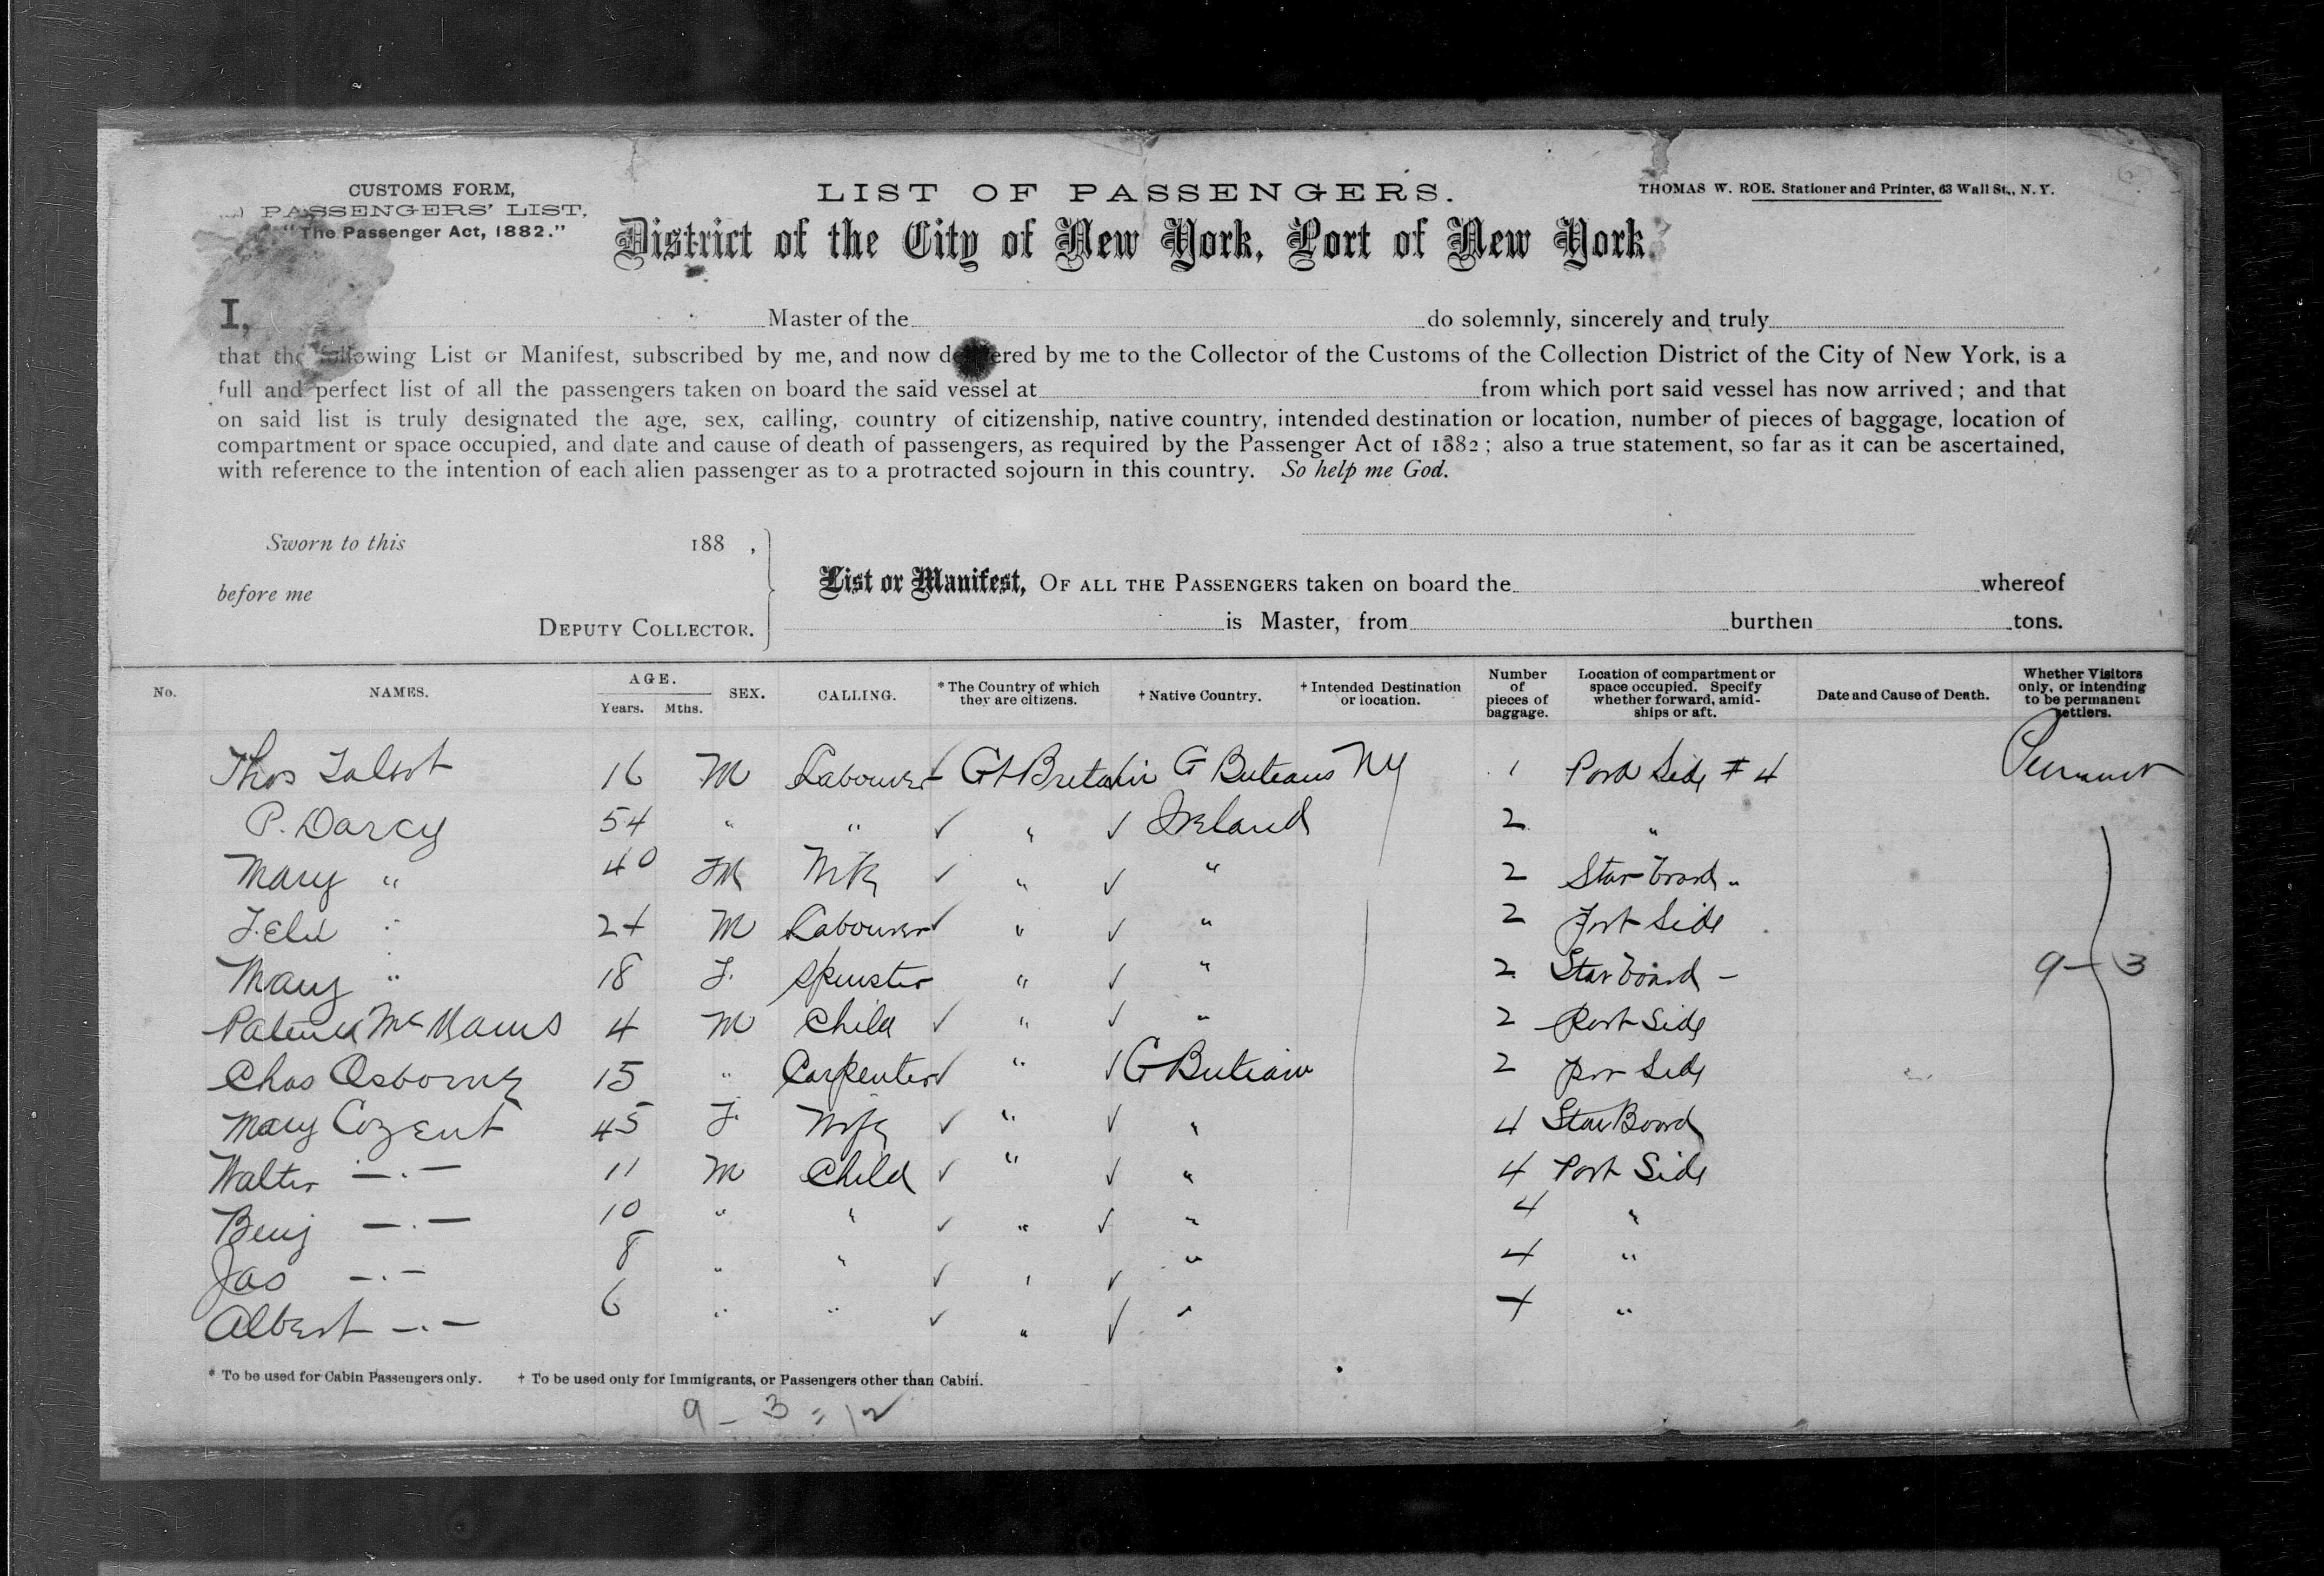 CUSTOMS FORM,
PASSENGERS' LIST,
"The Passenger Act, 1882."
LIST OF PASSENGERS.
THOMAS W. ROE, Stationer and Printer, 63 Wall St., N. Y.
District of the City of New York, Port of New York.
I, Master of the do solemnly, sincerely and truly
that the following List or Manifest, subscribed by me, and now delivered by me to the Collector of the Customs of the Collection District of the City of New York, is a
full and perfect list of all the passengers taken on board the said vessel at from which port said vessel has now arrived; and that
on said list is truly designated the age, sex, calling, country of citizenship, native country, intended destination or location, number of pieces of baggage, location of
compartment or space occupied, and date and cause of death of passengers, as required by the Passenger Act of 1882; also a true statement, so far as it can be ascertained,
with reference to the intention of each alien passenger as to a protracted sojourn in this country. So help me God.
Sworn to this 188 ,
before me
DEPUTY COLLECTOR.
List or Manifest, OF ALL THE PASSENGERS taken on board the whereof
is Master, from burthen tons.
No. NAMES. AGE. Years. Mths. SEX. CALLING. * The Country of which they are citizens. † Native Country. † Intended Destination or location. Number of pieces of baggage. Location of compartment or space occupied. Specify whether forward, amid-ships or aft. Date and Cause of Death. Whether Visitors only, or intending to be permanent settlers.
Thos Talbot 16 M Labourer Gt Britain G Britain NY 1 Port Side # 4
P. Darcy 54 " " " Ireland 2 "
Mary " 40 FM Wife " " 2 Starboard "
Felix " 24 M Labourer " " 2 Port Side
Mary " 18 F. Spinster " " 2 Starboard - 9 - 3
Patrick Mc 4 M Child " " 2 Port Side
Chas Osborne 15 " Carpenter " G Britain 2 Port Side
Mary Cozent 45 F. Wife " " 4 StarBoard
Walter -.- 11 M Child " " 4 Port Side
Benj -.- 10 " " " " 4 "
Jas -.- 8 " " " " 4 "
Albert -.- 6 " " " " 4 "
* To be used for Cabin Passengers only. † To be used only for Immigrants, or Passengers other than Cabin.
9 - 3 = 12